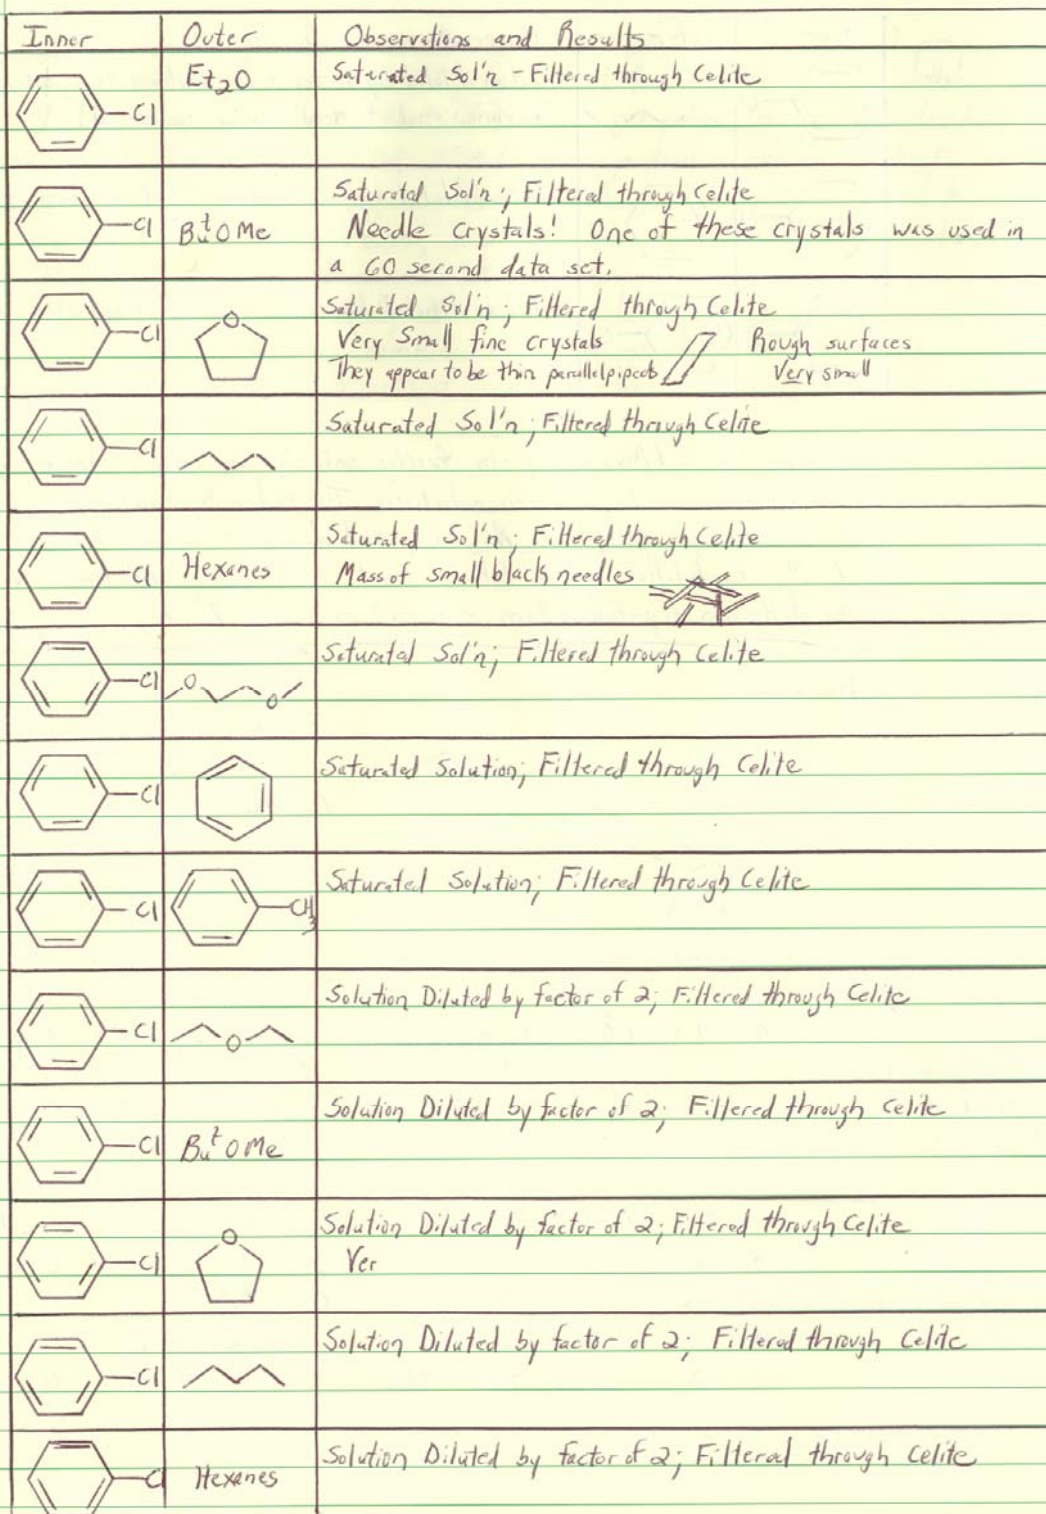 Inner Outer Observations and Results
Cl Et2O Saturated Sol'n - Filtered through Celite
Cl ButOMe Saturated Sol'n; Filtered through Celite
Needle Crystals! One of these crystals was used in
a 60 second data set.
Cl O Saturated Sol'n; Filtered through Celite
Very Small fine crystals Rough surfaces
They appear to be thin parallelpipeds Very small
Cl Saturated Sol'n; Filtered through Celite
Cl Hexanes Saturated Sol'n; Filtered through Celite
Mass of small black needles
Cl O O Saturated Sol'n; Filtered through Celite
Cl Saturated Solution; Filtered through Celite
Cl CH3 Saturated Solution; Filtered through Celite
Cl O Solution Diluted by factor of 2; Filtered through Celite
Cl ButOMe Solution Diluted by factor of 2; Filtered through Celite
Cl O Solution Diluted by factor of 2; Filtered through Celite
Ver
Cl Solution Diluted by factor of 2; Filtered through Celite
Cl Hexanes Solution Diluted by factor of 2; Filtered through Celite